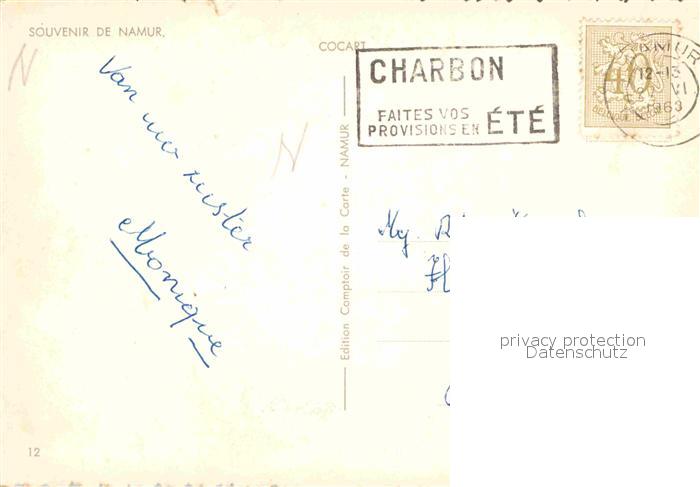 SOUVENIR DE NAMUR.
COCART
CHARBON
FAITES VOS
PROVISIONS EN ÉTÉ
NAMUR
12-13
VI
1963
40
N
N
Van uw zuster
Monique
Edition Comptoir de la Carte - NAMUR
Mej.
privacy protection
Datenschutz
12